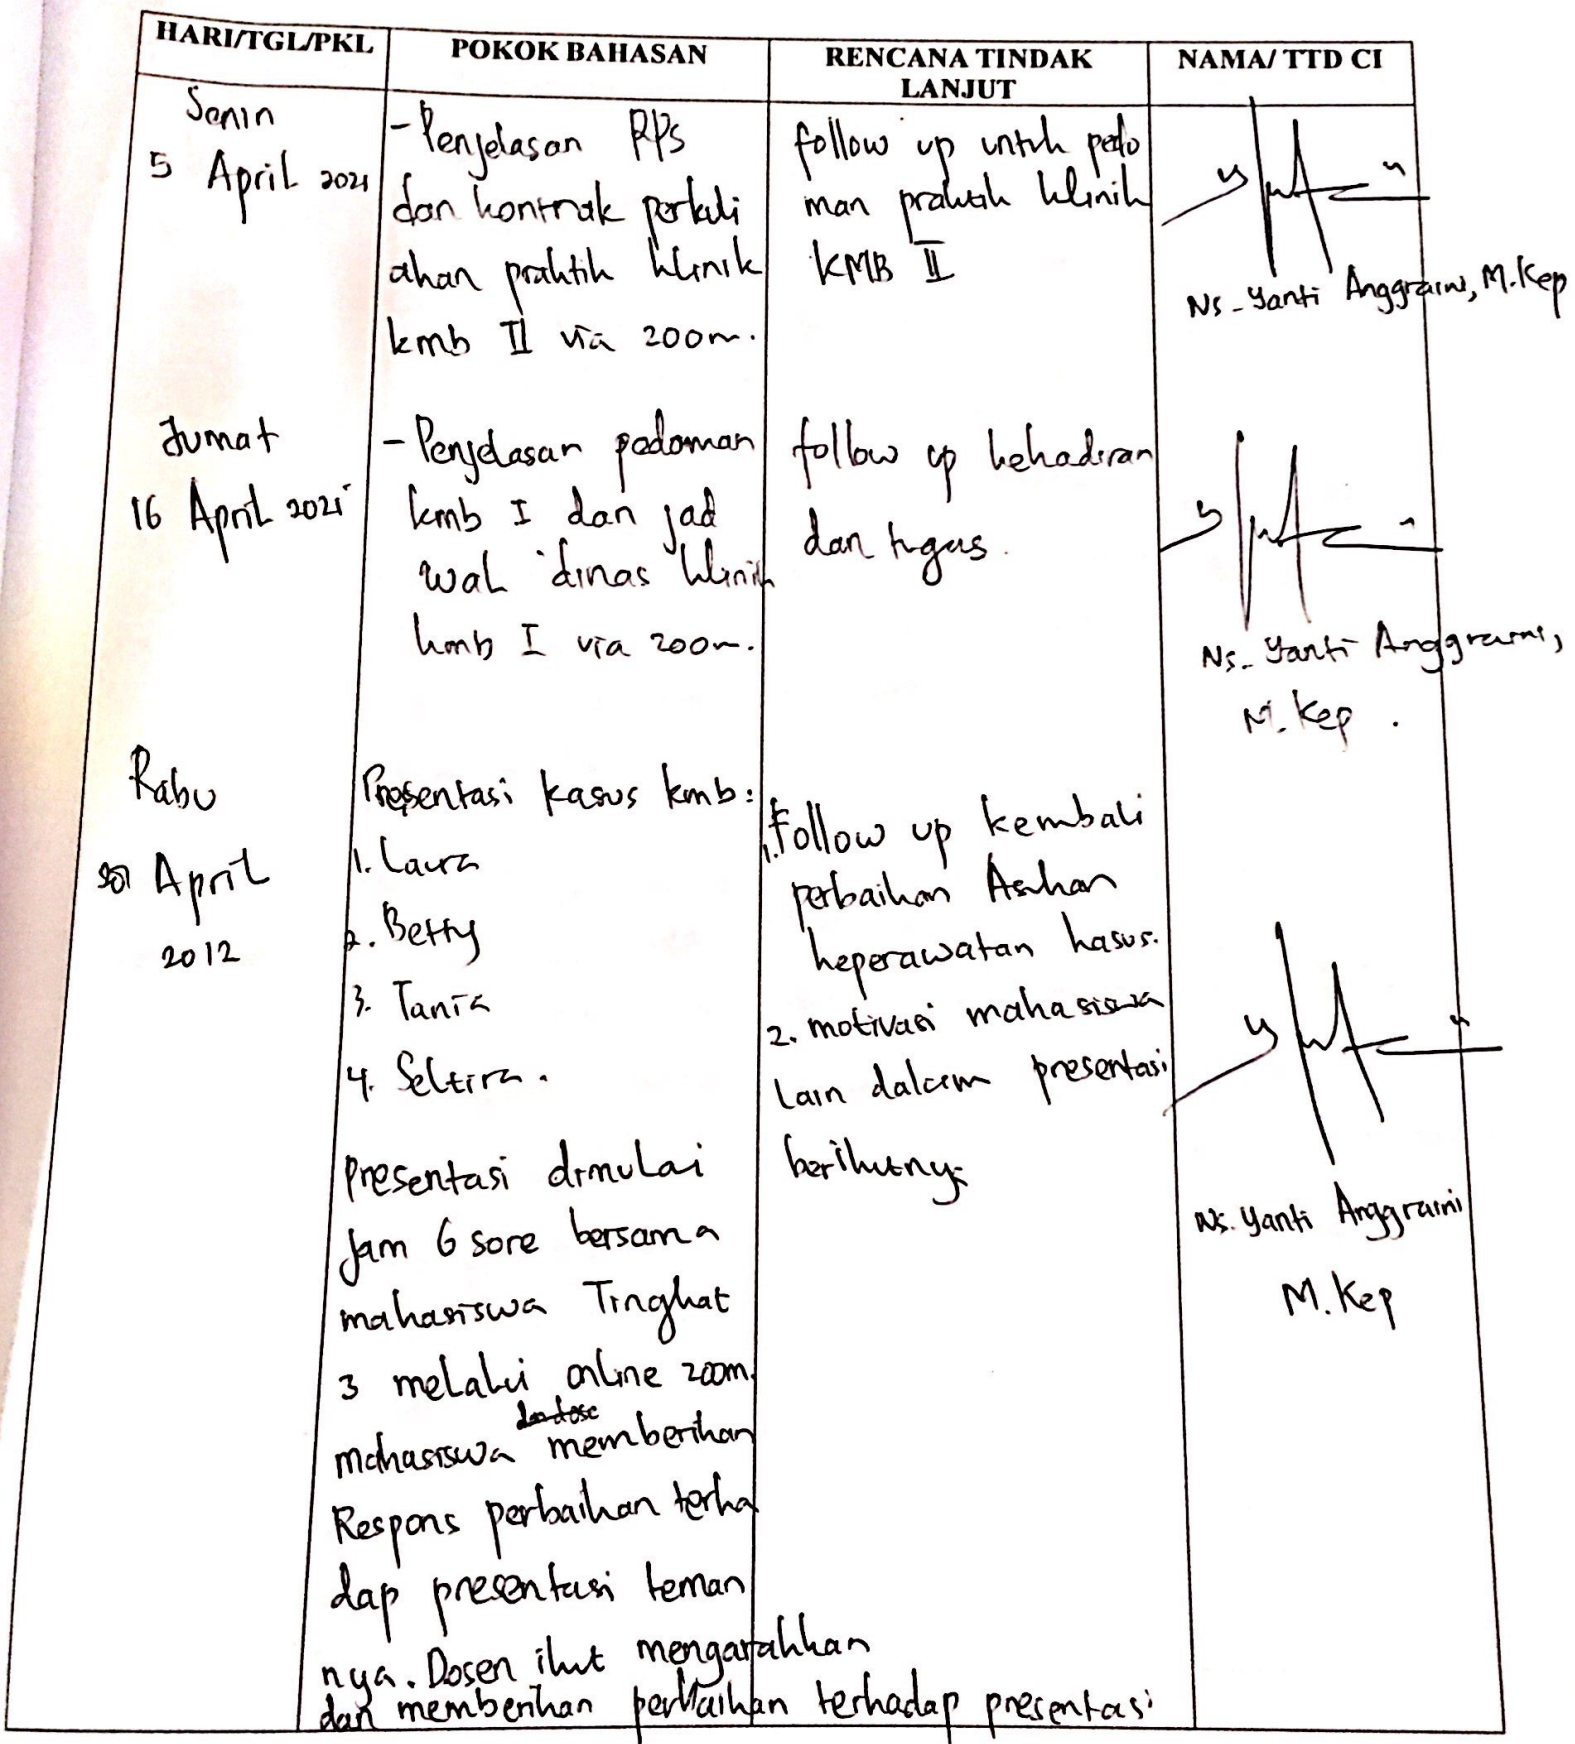 HARI/TGL/PKL
POKOK BAHASAN
RENCANA TINDAK
LANJUT
NAMA/ TTD CI
Senin
5 April 2021
- Penjelasan RPS
dan kontrak perkuli
ahan praktik klinik
kmb II via zoom.
follow up untuk pedo
man praktik klinik
KMB II
Ns. Yanti Anggraini, M.Kep
Jumat
16 April 2021
- Penjelasan pedoman
kmb I dan jad
wal dinas klinik
kmb I via zoom.
follow up kehadiran
dan tugas.
Ns. Yanti Anggraini,
M.Kep.
Rabu
April
2012
Presentasi kasus kmb:
1. Laura
2. Betty
3. Tania
4. Seltira.
presentasi dimulai
jam 6 sore bersama
mahasiswa Tingkat
3 melalui online zoom.
mahasiswa memberikan
Respons perbaikan terha
dap presentasi teman
nya. Dosen ikut mengarahkan
dan memberikan perbaikan terhadap presentasi
1. Follow up kembali
perbaikan Asuhan
keperawatan kasus.
2. motivasi mahasiswa
lain dalam presentasi
berikutnya
Ns. Yanti Anggraini
M.Kep